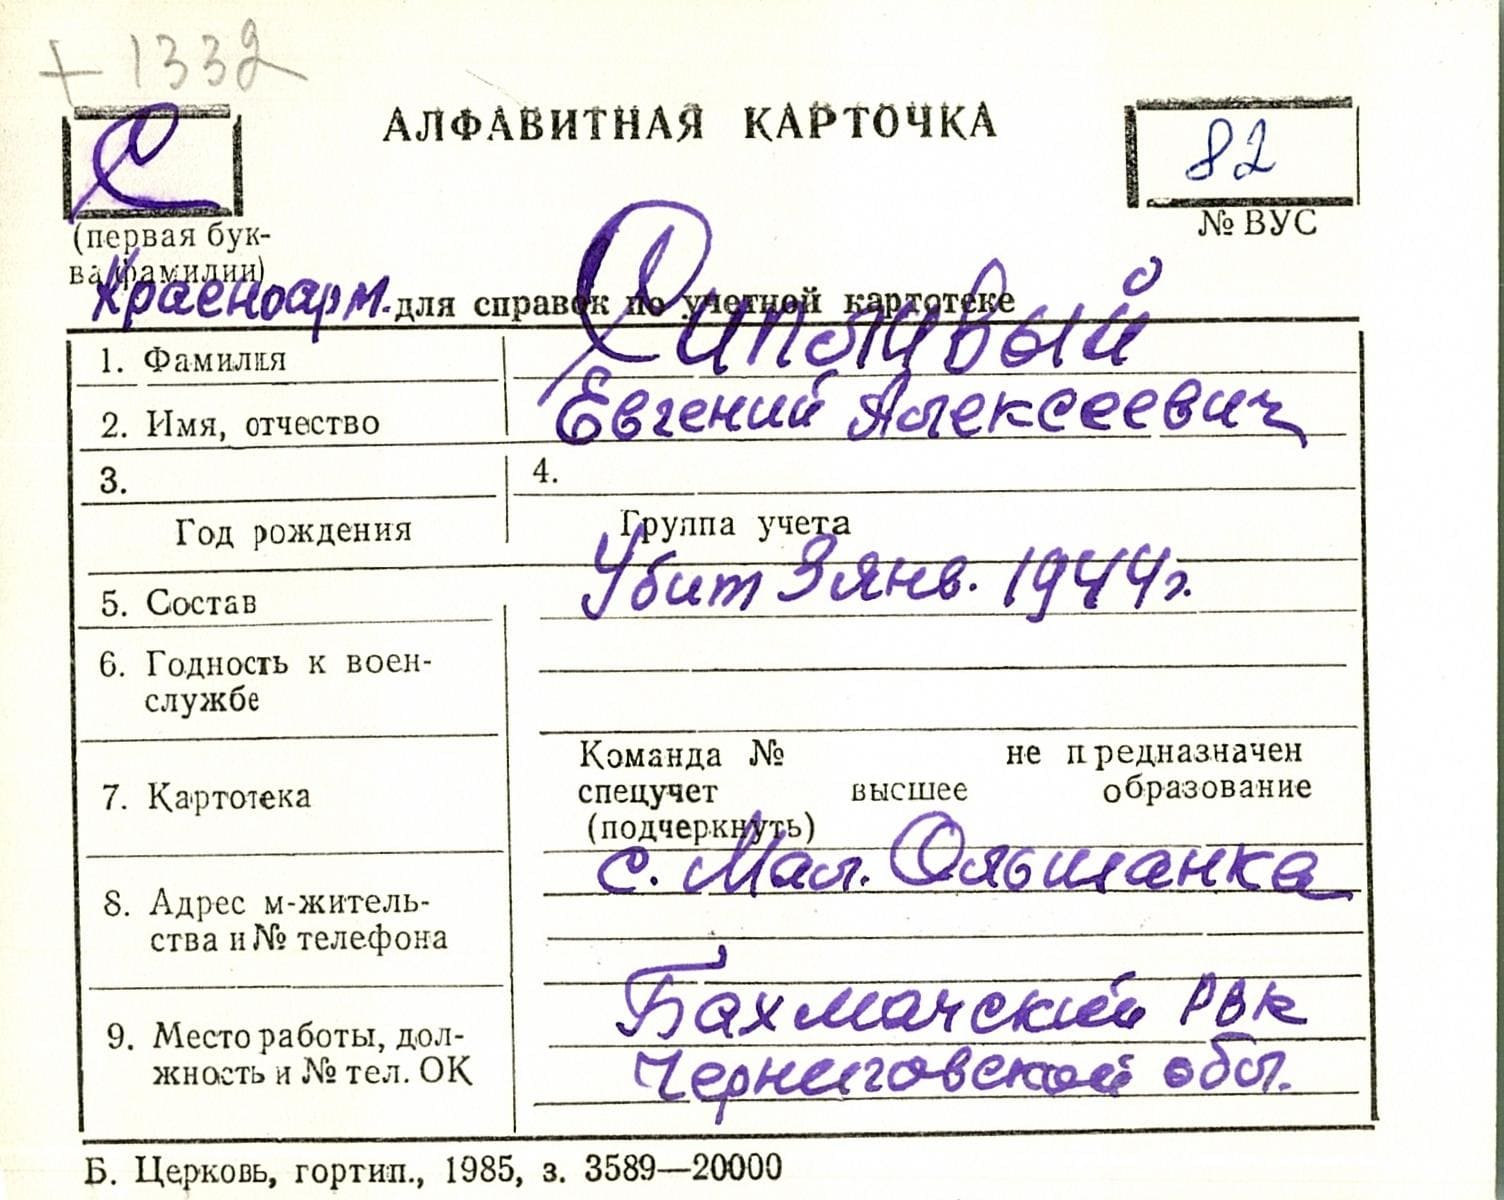 + 1332
С
АЛФАВИТНАЯ КАРТОЧКА
82
№ ВУС
(первая бук-
ва фамилии)
Красноарм. для справок по учетной картотеке
1. Фамилия
Сиполивый
2. Имя, отчество
Евгений Алексеевич
3.
4.
Год рождения
Группа учета
5. Состав
Убит 3 янв. 1944 г.
6. Годность к воен-
службе
7. Картотека
Команда № не предназначен
спецучет высшее образование
(подчеркнуть)
с. Мал. Ольшанка
8. Адрес м-житель-
ства и № телефона
9. Место работы, дол-
жность и № тел. ОК
Бахмачский РВК
Черниговской обл.
Б. Церковь, гортип., 1985, з. 3589—20000